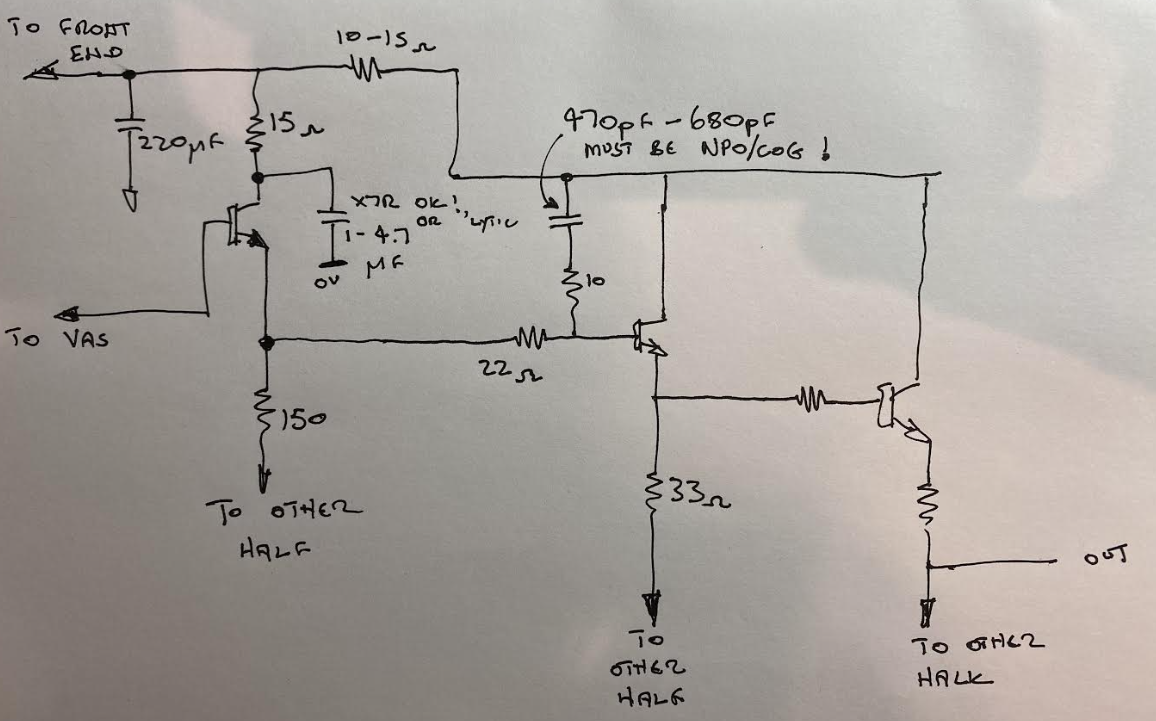 TO FRONT
END
10-15Ω
220µF
15Ω
470pF - 680pF
MUST BE NPO/COG !
X7R OK!
OR 'LYTIC
1-4.7
µF
0V
10
TO VAS
22Ω
150
TO OTHER
HALF
33Ω
OUT
TO
OTHER
HALF
TO OTHER
HALF